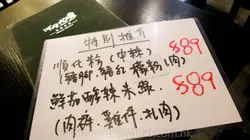 特別推介
順化粉(中辣) $89
(豬腳、豬紅、檬粉、扎肉)
鮮茄酸辣米線 $89
(肉碎、雞件、扎肉)